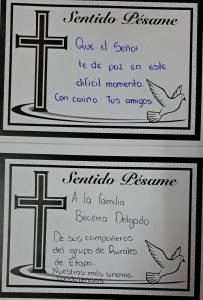 Sentido Pésame
Que el Señor
te de paz en este
dificil momento.
Con cariño: Tus amigos
Sentido Pésame
A la familia
Becerra Delgado
De sus compañeros
del grupo de Rurales
de Etapa.
Nuestras más sinceras
condolencias